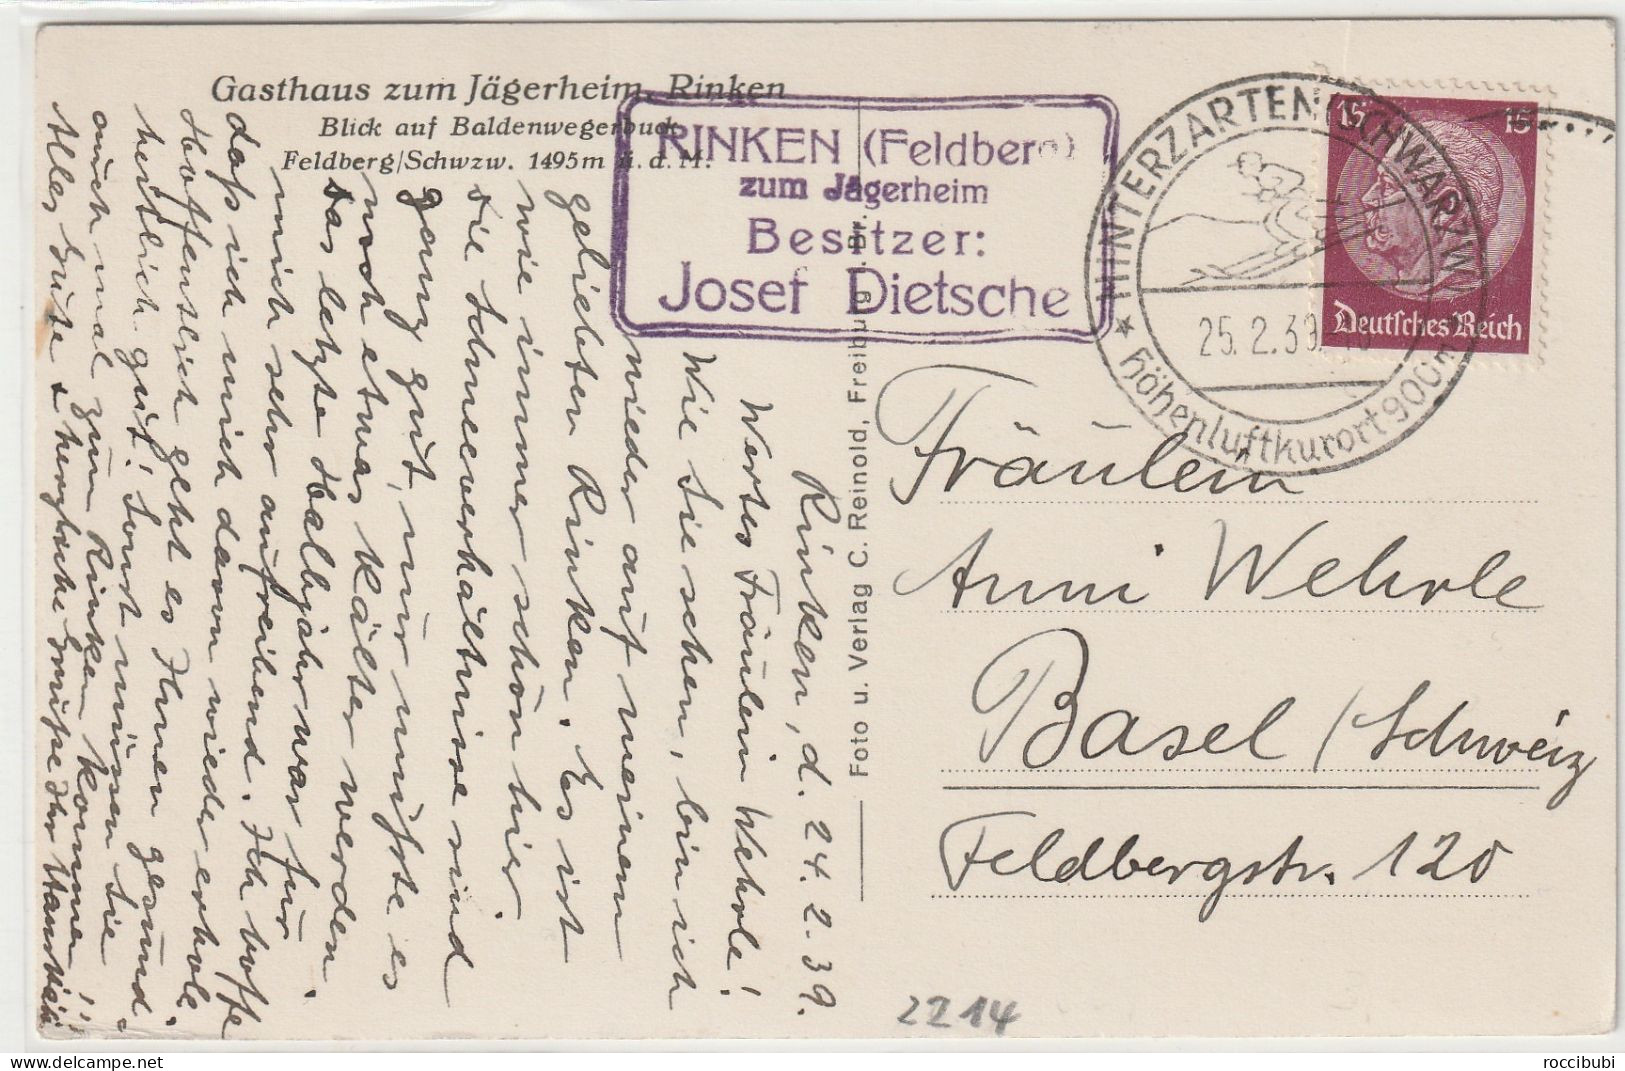 Gasthaus zum Jägerheim, Rinken
Blick auf Baldenwegerbuck
Feldberg/Schwzw. 1495m ü. d. M.
RINKEN (Feldberg)
zum Jägerheim
Besitzer:
Josef Dietsche
HINTERZARTEN (SCHWARZW)
25.2.39
Höhenluftkurort 900m
15 15
Deutsches Reich
Rinken, d. 24. 2. 39.
Wertes Fräulein Wehrle!
Wie Sie sehen, bin ich
wieder auf meinem
geliebten Rinken. Es ist
wie immer schön hier.
Die Schneeverhältnisse sind
ganz gut, nur müßte es
noch etwas kälter werden.
Das letzte Halbjahr war für
mich sehr aufreibend. Ich hoffe
daß ich mich davon wieder erhole.
Hoffentlich geht es Ihnen gesund-
heitlich gut! Sonst müssen Sie
auch mal zum Rinken kommen!!
Alles Gute & herzliche Grüße Ihr
Foto u. Verlag C. Reinold, Freiburg i. Br.
Fräulein
Anni Wehrle
Basel / Schweiz
Feldbergstr. 120
2214
roccibubi